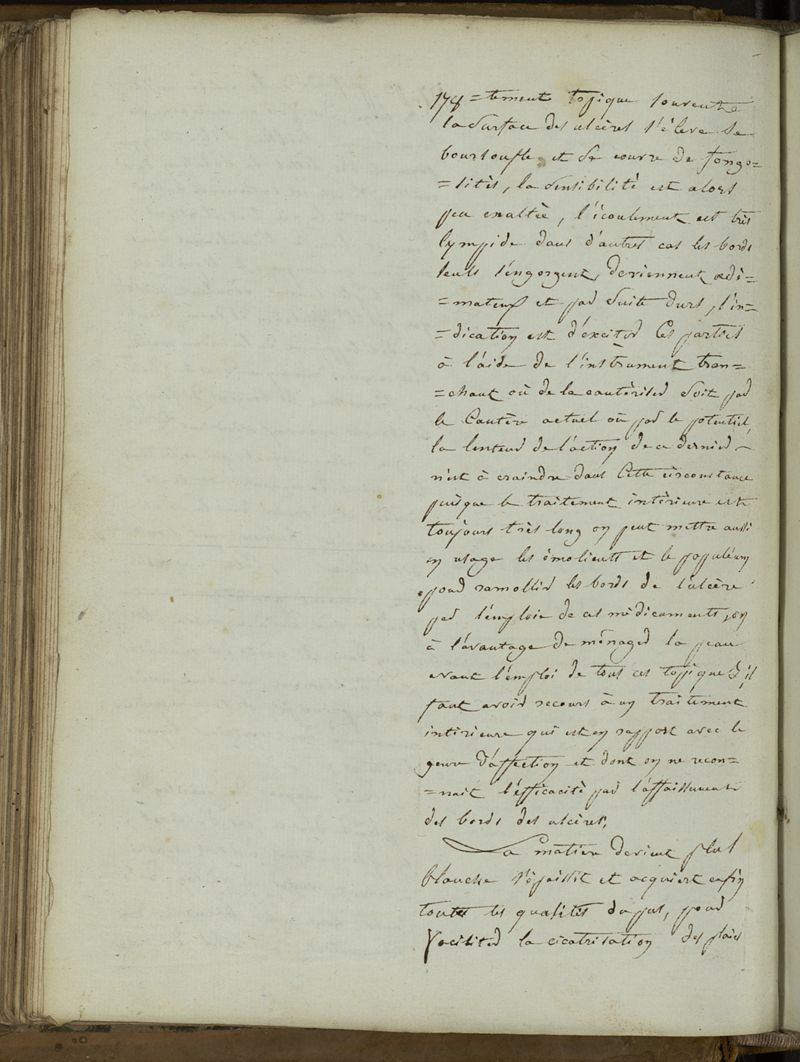 178 = tement topique souvent
la surface des ulcères s'élève se
boursoufle et se couvre de fongo=
=sités, la sensibilité est alors
peu exaltée, l'écoulement est très
lympide dans d'autres cas les bords
seuls s'engorgent, deviennent œdé=
=mateux et par suite durs, l'in=
=dication est d'exciter ces parties
à l'aide de l'instrument tran=
=chant où de la cautériser soit par
le Cautère actuel où par le potentiel,
la lenteur de l'action de ce dernier
n'est à craindre dans cette circonstance
puisque le traitement intérieure est
toujours très long on peut mettre aussi
en usage les émolients et le populéum
pour ramollir les bords de l'ulcère
par l'emploie de ces médicaments, on
à l'avantage de ménager la peau
avant l'emploi de tous ces topiques, il
faut avoir recours à un traitement
intérieure qui est en rapport avec le
genre d'affection et dont on ne recon=
=nait l'éfficacité par l'affaissement
des bords des ulcères.
La matière devient plus
blanche s'épaissit et acquiert enfin
toutes les qualités du pus, pour
faciliter la cicatrisation des plaies